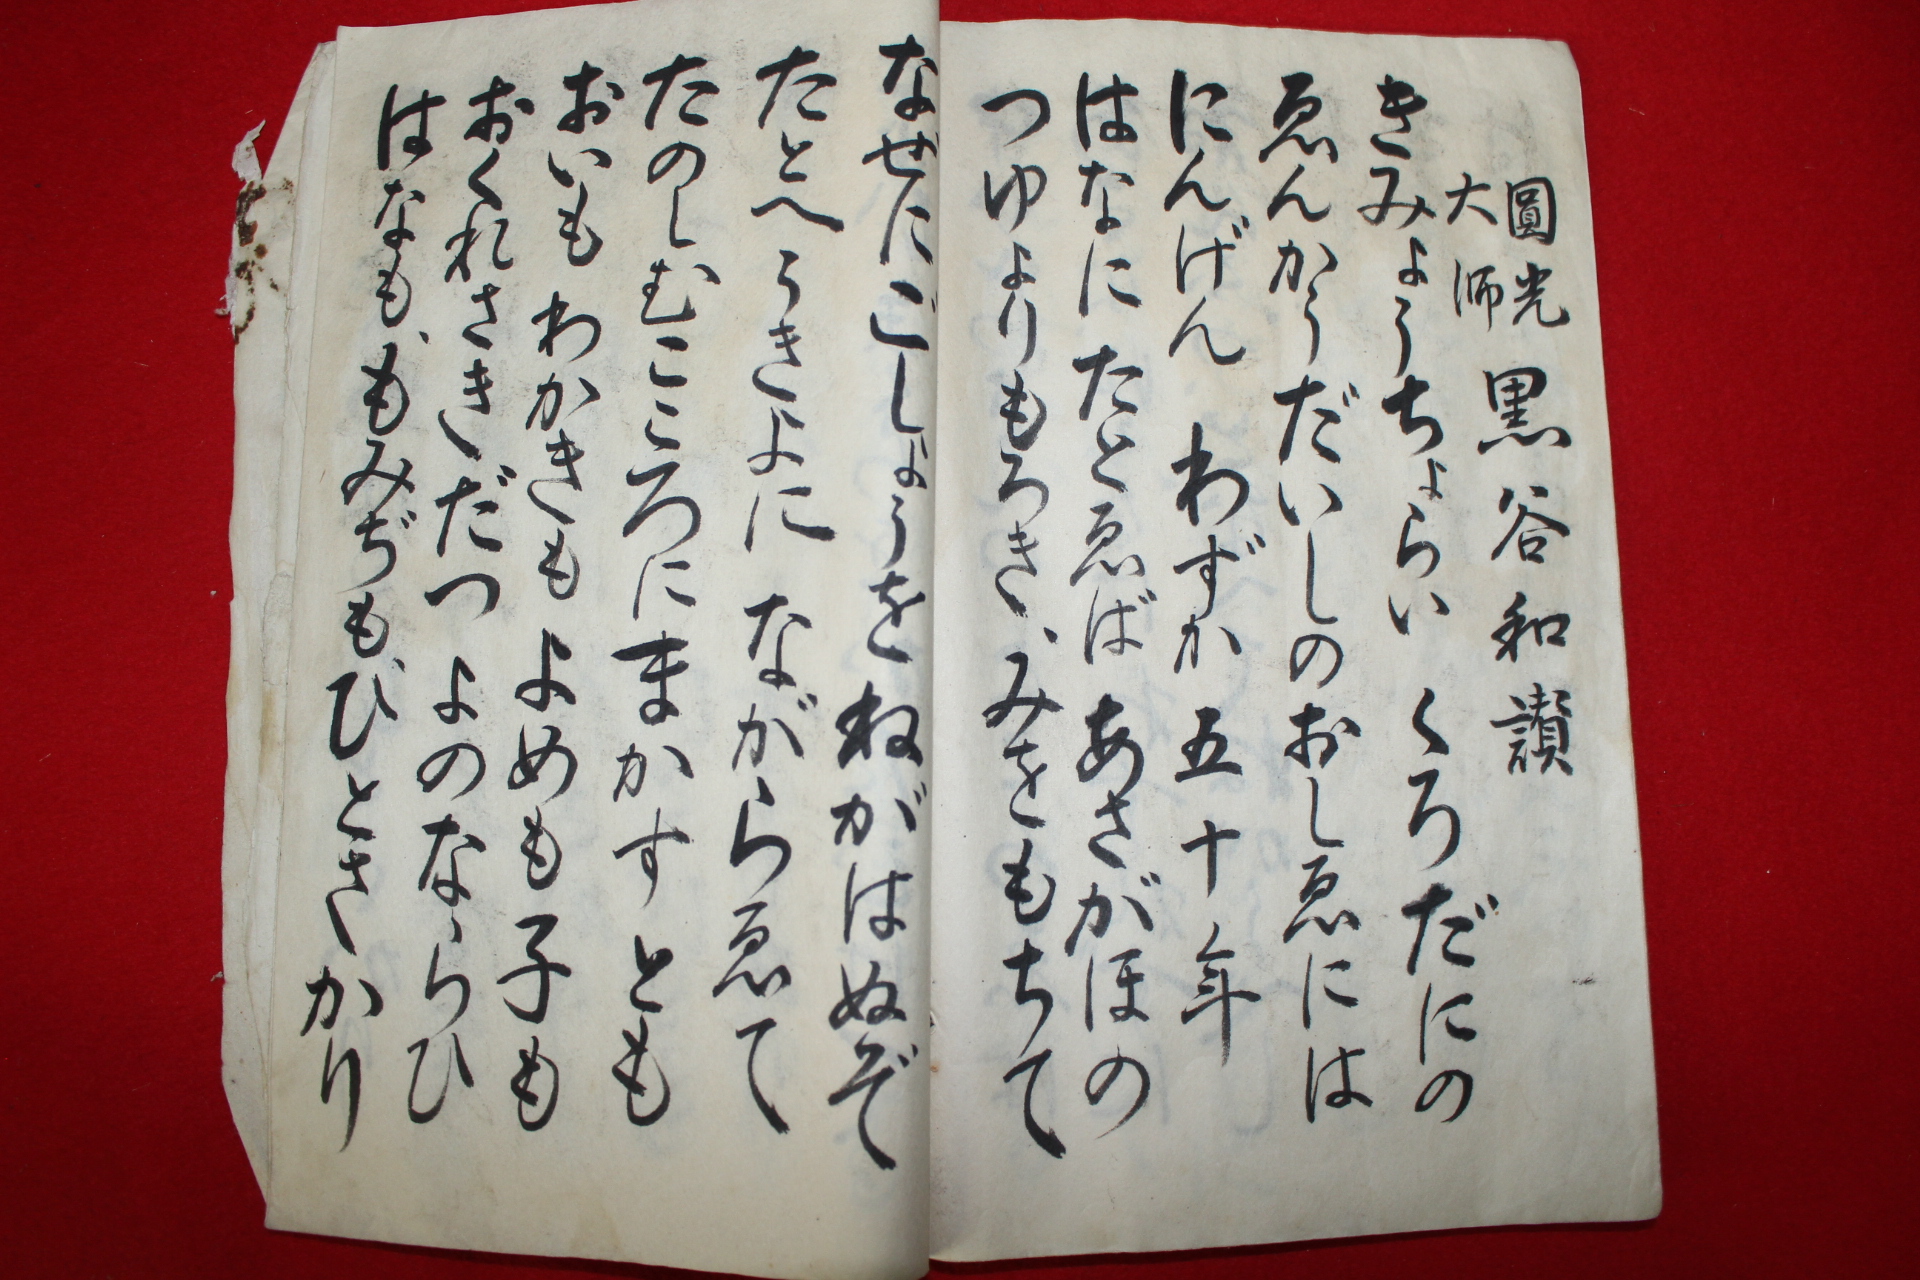 圓光大師 黒谷和讃
きみょうちょらい くろだにの
ゑんかうだいしのおしゑには
にんげん わずか 五十年
はなに たとゑば あさがほの
つゆよりもろき、みをもちて
なぜにごしょうをねがはぬぞ
たとへうきよに ながらゑて
たのしむこころにまかすとも
おいも わかきも よめも子も
おくれさきだつ よのならひ
はなも、もみぢも、ひとさかり